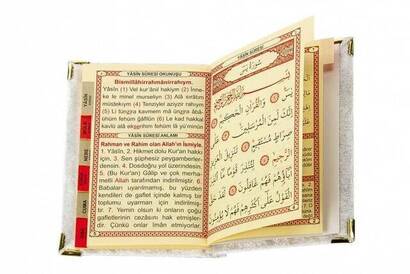 YÂSİN SÛRESİ OKUNUŞU
Bismillâhirrahmânirrahıym.
Yâsîn (1) Vel kur'ânil hakiym (2) İnne-
ke le minel murseliyn (3) Alâ sırâtım
müstekıym (4) Tenziylel aziyzir rahıym
(5) Li tünzira kavmem mâ ünzira âbâü-
hüm fehüm ğâfilûn (6) Le kad hakkal
kavlü alâ ekserihim fehüm lâ yü'minûn
YÂSİN SÛRESİ ANLAMI
Rahman ve Rahim olan Allah'ın İsmiyle.
1. Yâsîn, 2. Hikmet dolu Kur'an hakkı
için, 3. Sen şüphesiz peygamberler-
densin. 4. Dosdoğru yol üzerindesin,
5. (Bu Kur'an) Gâlip ve çok merha-
metli Allah tarafından indirilmiştir. 6.
Babaları uyarılmamış, bu yüzden
kendileri de gaflet içinde kalmış bir
toplumu uyarman için indirilmiş-
tir. 7. Yemin olsun ki onların çoğu
gafletlerinin cezâsını hak etmişler-
dir. Çünkü onlar îman etmiyorlar.
YÂSİN
MÜLK
NEBE
CUMA
YÂSİN SÛRESİ
سُورَةُ يٰسٓ
يٰسٓ وَالْقُرْاٰنِ الْحَكٖيمِ
اِنَّكَ لَمِنَ الْمُرْسَلٖينَ
صِرَاطٍ مُسْتَقٖيمٍ
الرَّحٖيمِ
اٰبَاؤُهُمْ فَهُمْ غَافِلُونَ
الْقَوْلُ عَلٰٓى اَكْثَرِهِمْ فَهُمْ لَا يُؤْمِنُونَ